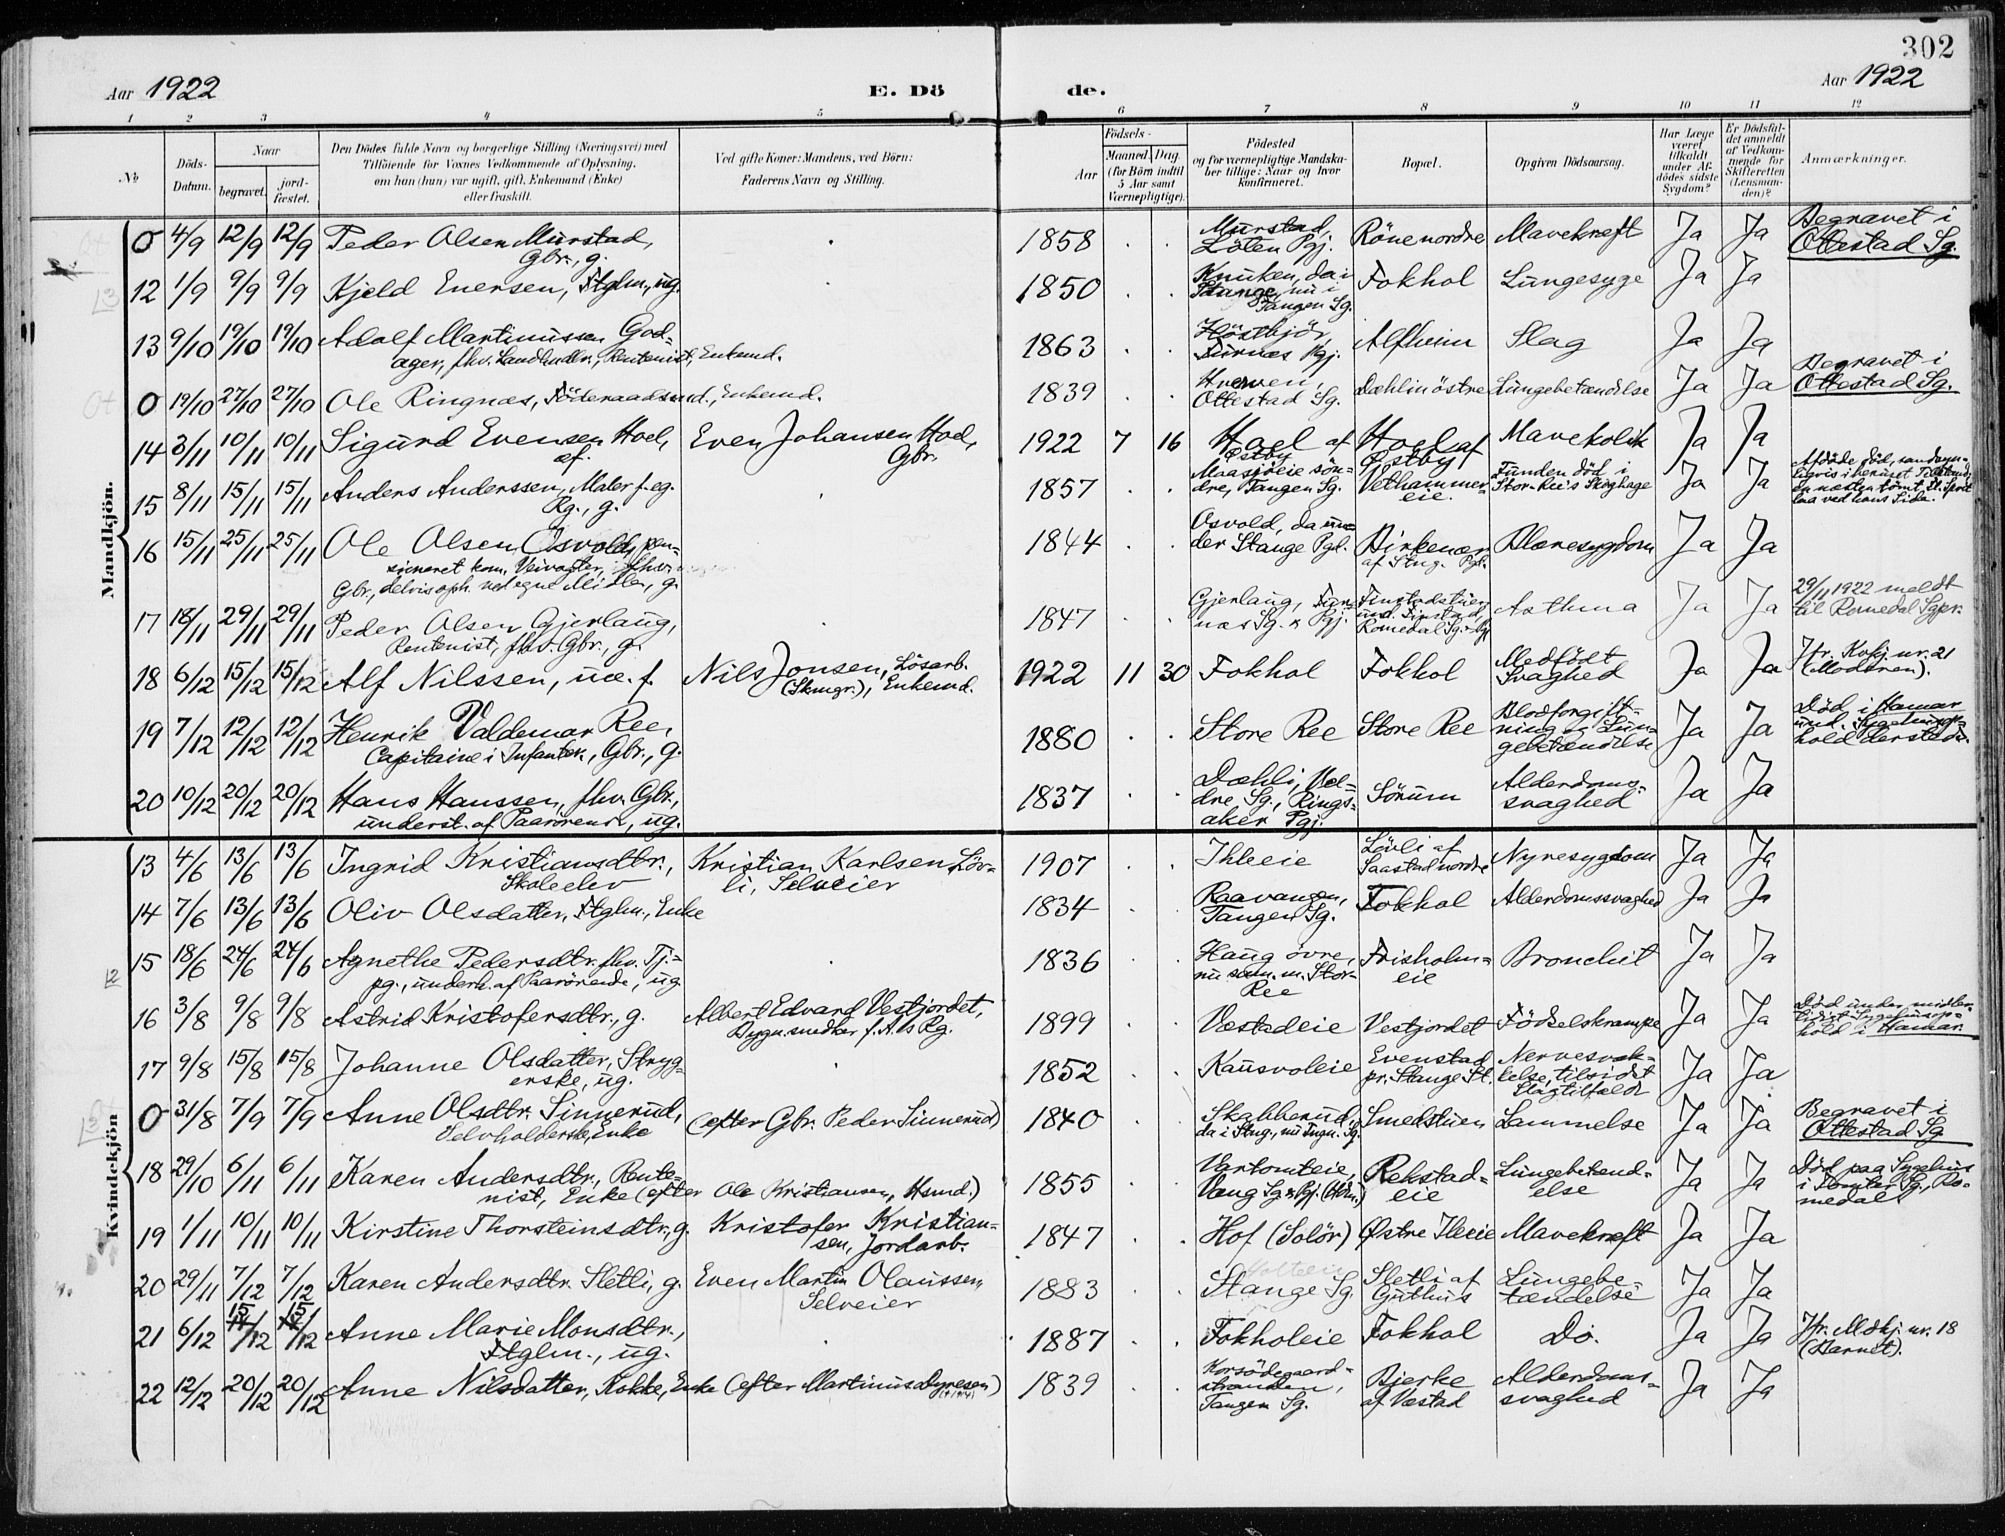 302
Aar 1922
E. Dö
de.
Aar 1922
1 2 3 4 5 6 7 8 9 10 11 12
№
Döds-Datum.
Naar
begravet.
jord-fæstet.
Den Dödes fulde Navn og borgerlige Stilling (Næringsvei) med
Tilföiende for Voxnes Vedkommende af Oplysning,
om han (hun) var ugift, gift, Enkemand (Enke)
eller fraskilt.
Ved gifte Koner: Mandens, ved Börn:
Faderens Navn og Stilling.
Födsels-
Aar
Maaned. Dag.
(for Börn indtil
5 Aar samt
Værnepligtige).
Födested
og for værnepligtige Mandska-
ber tillige: Naar og hvor
konfirmeret.
Bopæl.
Opgiven Dödsaarsag.
Har Læge
været
tilkaldt
under Af-
dödes sidste
Sygdom?
Er Dödsfal-
det anmeldt
af Vedkom-
mende for
Skifteretten
(Lensman-
den)?
Anmærkninger.
Mandkjön.
0 4/9 12/9 12/9 Peder Olsen Murstad, Gbr., g. 1858 Murstad, Löten Pgj. Röne nordre Mavekræft Ja Ja Begravet i Ottestad Sg.
12 1/9 9/9 9/9 Kjeld Enersen, Ftglm., ug. 1850 Knuken, da i Stange, nu i Tangen Sg. Fokhol Lungesyge Ja Ja
13 9/10 19/10 19/10 Adolf Martinussen Godager, fhv. Landhdlr., Rentenist, Enkemd. 1863 Furnæs Pgj. Alfheim Slag Ja Ja
0 19/10 27/10 27/10 Ole Ringnæs, Föderaadsmd., Enkemd. 1839 Ottestad Sg. Dæhlin östre Lungebetændelse Ja Ja Begravet i Ottestad Sg.
14 3/11 10/11 10/11 Sigurd Evensen Hoel, af. Even Johansen Hoel, Gbr. 1922 7 16 Hoel af Østby Hoel af Østby Mavekolik Ja Ja
15 8/11 15/11 15/11 Anders Anderssen, Maler f. eg. Rg., g. 1857 Maasjöeie söndre, Tangen Sg. Vethammereie Funden död i Stor-Ree's Skoghage Ja Ja
16 15/11 25/11 25/11 Ole Olsen Osvold, pensioneret kom. Veivogter, fhv. Gbr., delvis oph. ved egne Midler, g. 1844 Osvold, da under Stange Pgl. Birkenæs af Stng. Pgl. Blæresygdom Ja Ja
17 18/11 29/11 29/11 Peder Olsen Gjerlaug, Rentenist, fhv. Gbr., g. 1847 Gjerlaug, Furnæs Sg. & Pgj. Finstadstuen und. Finstad, Romedal Sg. & Pgj. Asthma Ja Ja 29/11 1922 meldt til Romedal Sgpr.
18 6/12 15/12 15/12 Alf Nilssen, uæ. f. Nils Jonsen, Lösarb. (Skmgr.), Enkemd. 1922 11 30 Fokhol Fokhol Medfödt Svaghed Ja Ja Jfr. Kvkj nr. 21 (Moderen).
19 7/12 12/12 12/12 Henrik Valdemar Ree, Capitaine i Infanter., Gbr., g. 1880 Store Ree Store Ree Blodforgiftning og Lungebetændelse Ja Ja Död i Hamar und. Sygehusophold dersteds.
20 10/12 20/12 20/12 Hans Hanssen, fhv. Gbr., underst. af Paarörende, ug. 1837 Dæhli, Veldre Sg., Ringsaker Pgj. Sörum Alderdomssvaghed Ja Ja
Kvindekjön
13 4/6 13/6 13/6 Ingrid Kristiansdtr., Skoleelev Kristian Karlsen Lövli, Selveier 1907 Ihleeie Lövli af Saastad nordre Nyresygdom Ja Ja
14 7/6 13/6 13/6 Oliv Olsdatter, Ftglm., Enke 1834 Raavangen, Tangen Sg. Fokhol Alderdomssvaghed Ja Ja
15 18/6 24/6 24/6 Agnethe Pedersdtr. fhv. Tj.pg., underh. af Paarörende, ug. 1836 Haug övre, nu sam. m. Stor-Ree Frisholmeie Bronchit Ja Ja
16 3/8 9/8 9/8 Astrid Kristofersdtr., g. Albert Edvard Vestjordet, Bygn.snedker f. A's Rg. 1899 Væstadeie Vestjordet Födselskrampe Ja Ja Död under midlertidigt Sygehusophold i Hamar.
17 9/8 15/8 15/8 Johanne Olsdatter, Strygerske, ug. 1852 Kausvoleie Evenstad pr. Stange St. Nervesvækkelse, tilsidst Slagtilfælde Ja Ja
0 31/8 7/9 7/9 Anne Olsdtr. Sinnerud, Selvholderske, Enke (efter Gbr. Peder Sinnerud) 1840 Skabberud, da i Stng., nu Tngn. Sg. Smedstuen Lammelse Ja Ja Begravet i Ottestad Sg
18 29/10 6/11 6/11 Karen Andersdtr., Rentenist, Enke (efter Ole Kristiansen, Hsmd.) 1855 Vartomteie, Vang Sg. & Pgj. (Hdm.) Rekstadeie Lungebetændelse Ja Ja Död paa Sygehus i Tomter Sg., Romedal
19 1/11 10/11 10/11 Kirstine Thorsteinsdtr., g. Kristofer Kristiansen, Jordarb. 1847 Hof (Solör) Østre Ileeie Mavekræft Ja Ja
20 29/11 7/12 7/12 Karen Andersdtr. Sletli, g. Even Martin Olaussen, Selveier 1883 Stange Sg. Sletli af Guthus Lungebetændelse Ja Ja
21 6/12 15/12 15/12 Anne Marie Monsdtr., Ftglm., ug. 1887 Fokholeie Fokhol Do. Ja Ja Jfr. Mdkj. nr. 18 (Barnet).
22 12/12 20/12 20/12 Anne Nilsdatter, Kokke, Enke (efter Martinus Dyresen) 1839 Korsödegaardstranden, Tangen Sg. Bjerke af Væstad Alderdomssvaghed Ja Ja